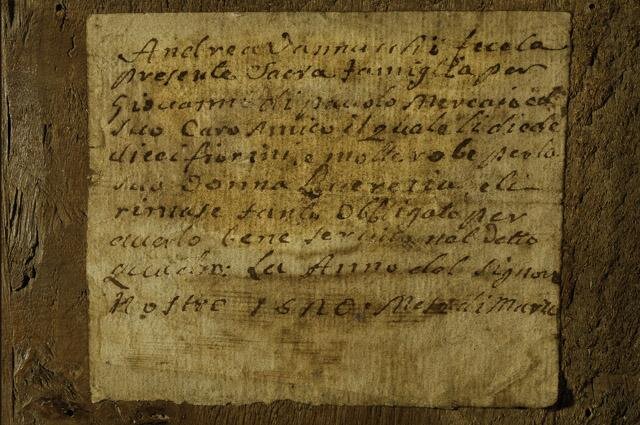 Andrea Vannucchi fece la
presente Sacra famiglia per
Giovanni di pavolo Merciaio ed
suo Caro Amico il quale li diede
dieci fiorini e molte robe per la
sua Donna Lucrezia, e li
rimase tanto Obbligato per
averlo bene servito nel detto
quadro: La Anno del Signor
Nostro Mese di Marzo